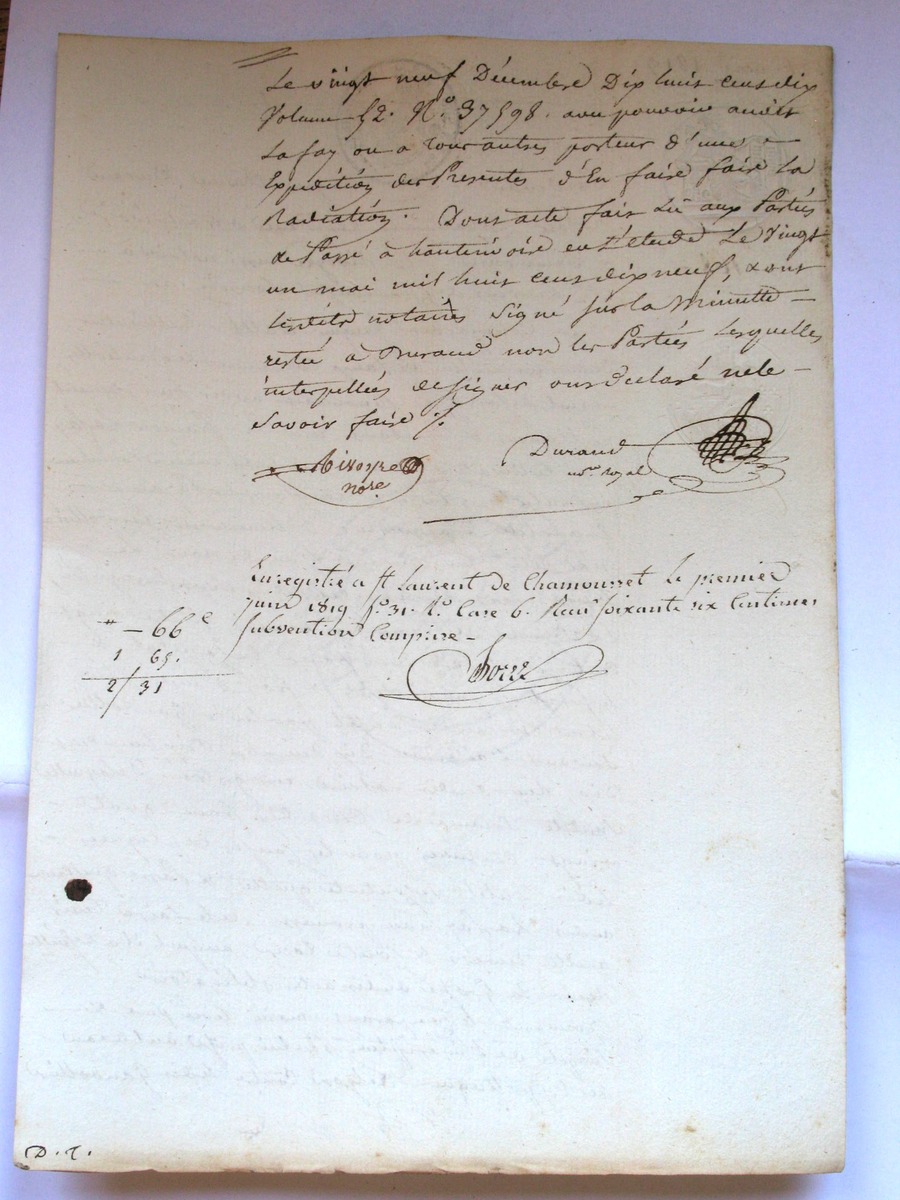 Le vingt neuf Décembre Dix huit cens dix
Volume 52. N.o 37598. avec pouvoir audit
Lafay ou a Tous autres porteur d'une -
Expedition des Presentes d'En faire faire La
Radiation. Dont acte fait Lû aux Parties
de Passé à hauterivoire en l'étude Le Vingt
un mai mil huit cens dix neuf, & ont
lesdits notaires Signé Sur la Minutte -
restée a Durand non les Parties Lesquelles
interpellées de signer ont déclaré ne le -
Savoir faire ./.
Rivoyre
nore.
Durand
no.re royal
Enregistré a St Laurent de Chamousset Le premier
juin 1819 fo. 31. Ro. Case 6. Recu soixante six Centimes
Subvention Comprise -
- 66 c
1 65.
2 / 31
D. T.